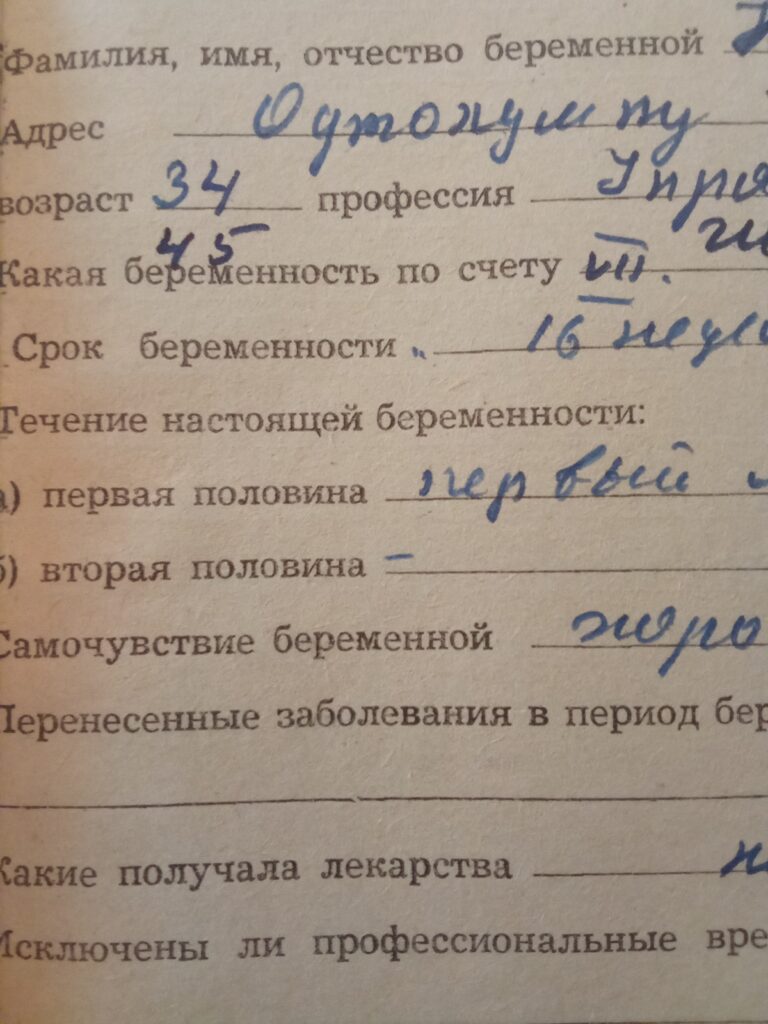 Фамилия, имя, отчество беременной
Адрес
возраст 34 профессия
45
Какая беременность по счету VII.
Срок беременности 16 неде
Течение настоящей беременности:
а) первая половина первый
б) вторая половина –
Самочувствие беременной хоро
Перенесенные заболевания в период бер
Какие получала лекарства
Исключены ли профессиональные вре